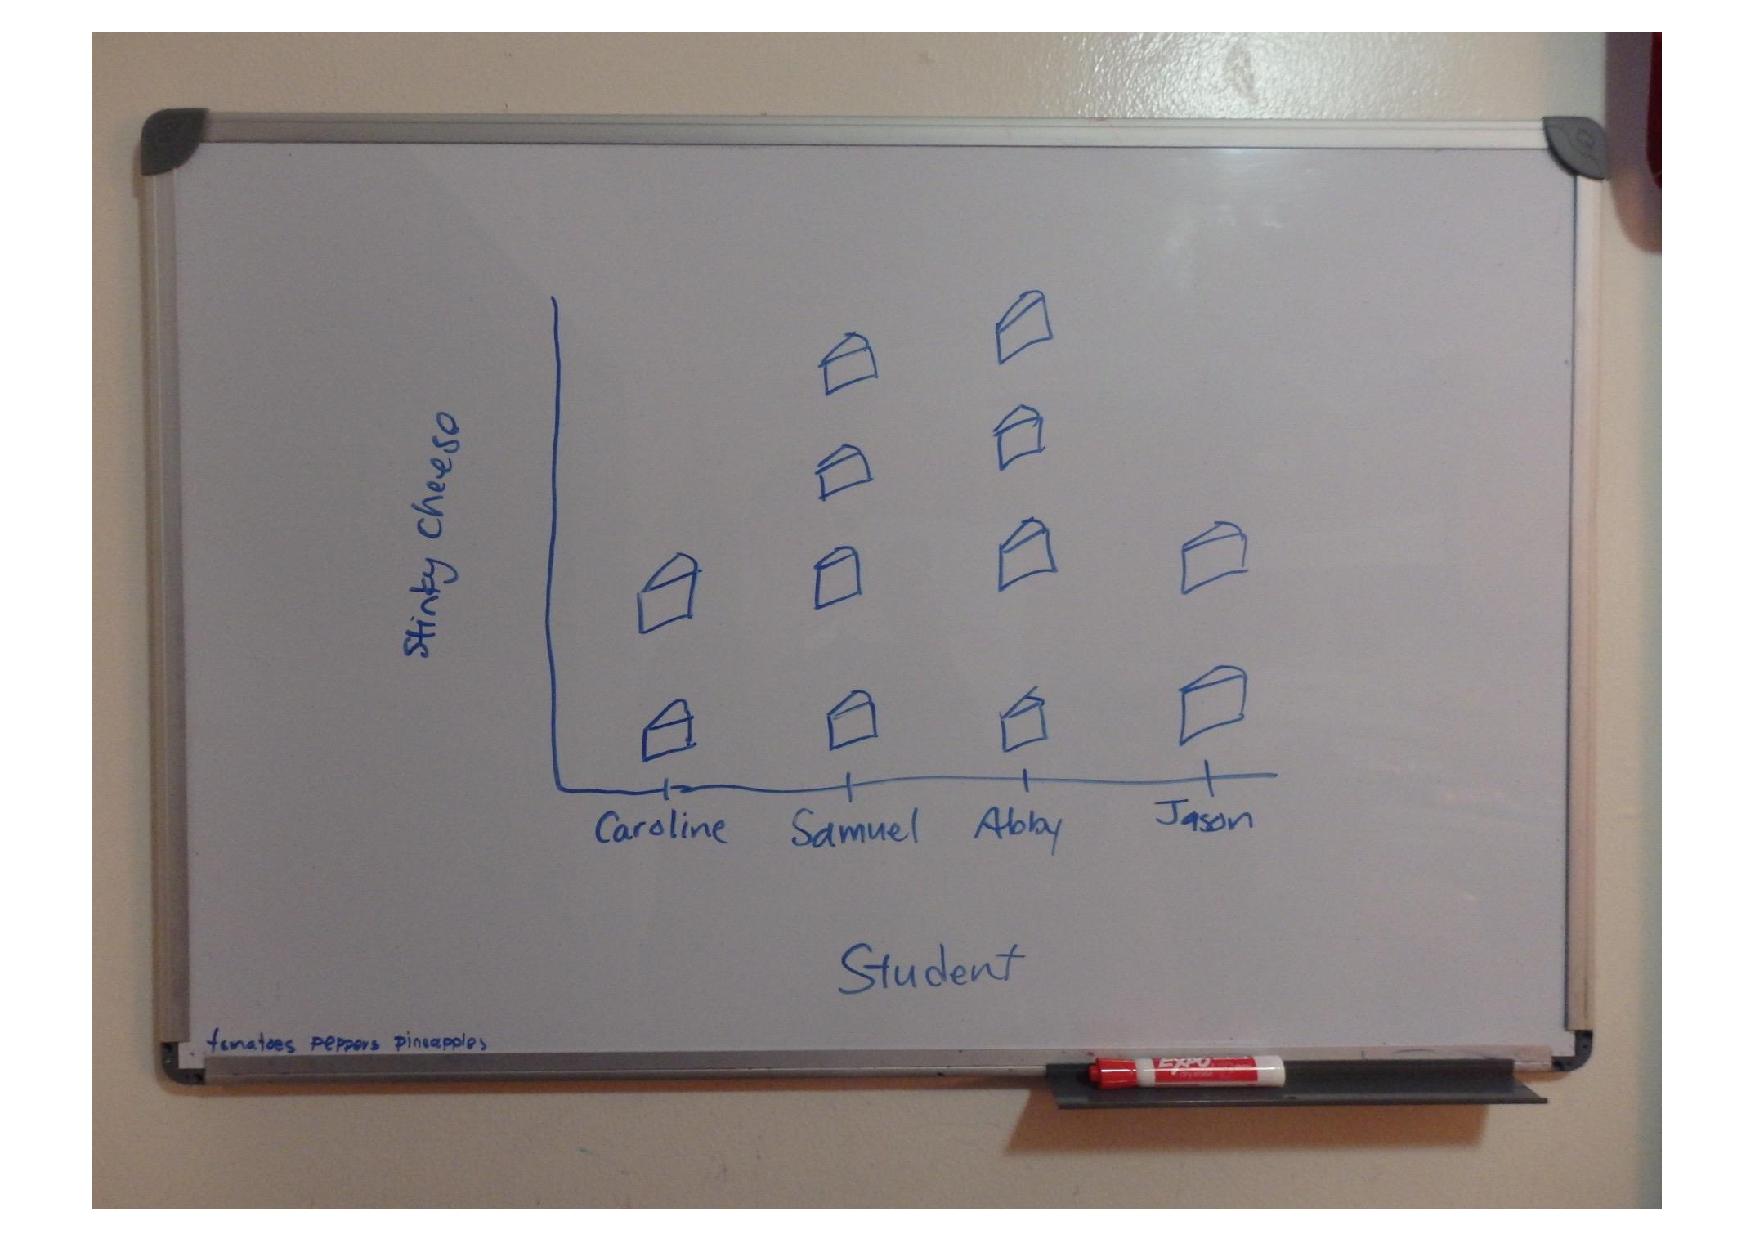 Stinky Cheese
Caroline Samuel Abby Jason
Student
tomatoes peppers pineapples
EXPO